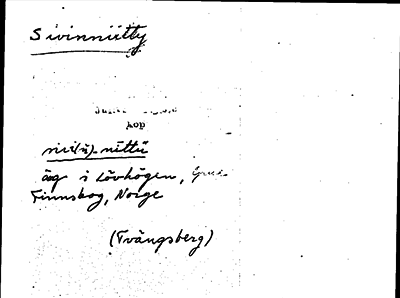 Sivinniitty
kop
nittü
äng i Lövhögen,
Finnskog, Norge
(Tvängsberg)